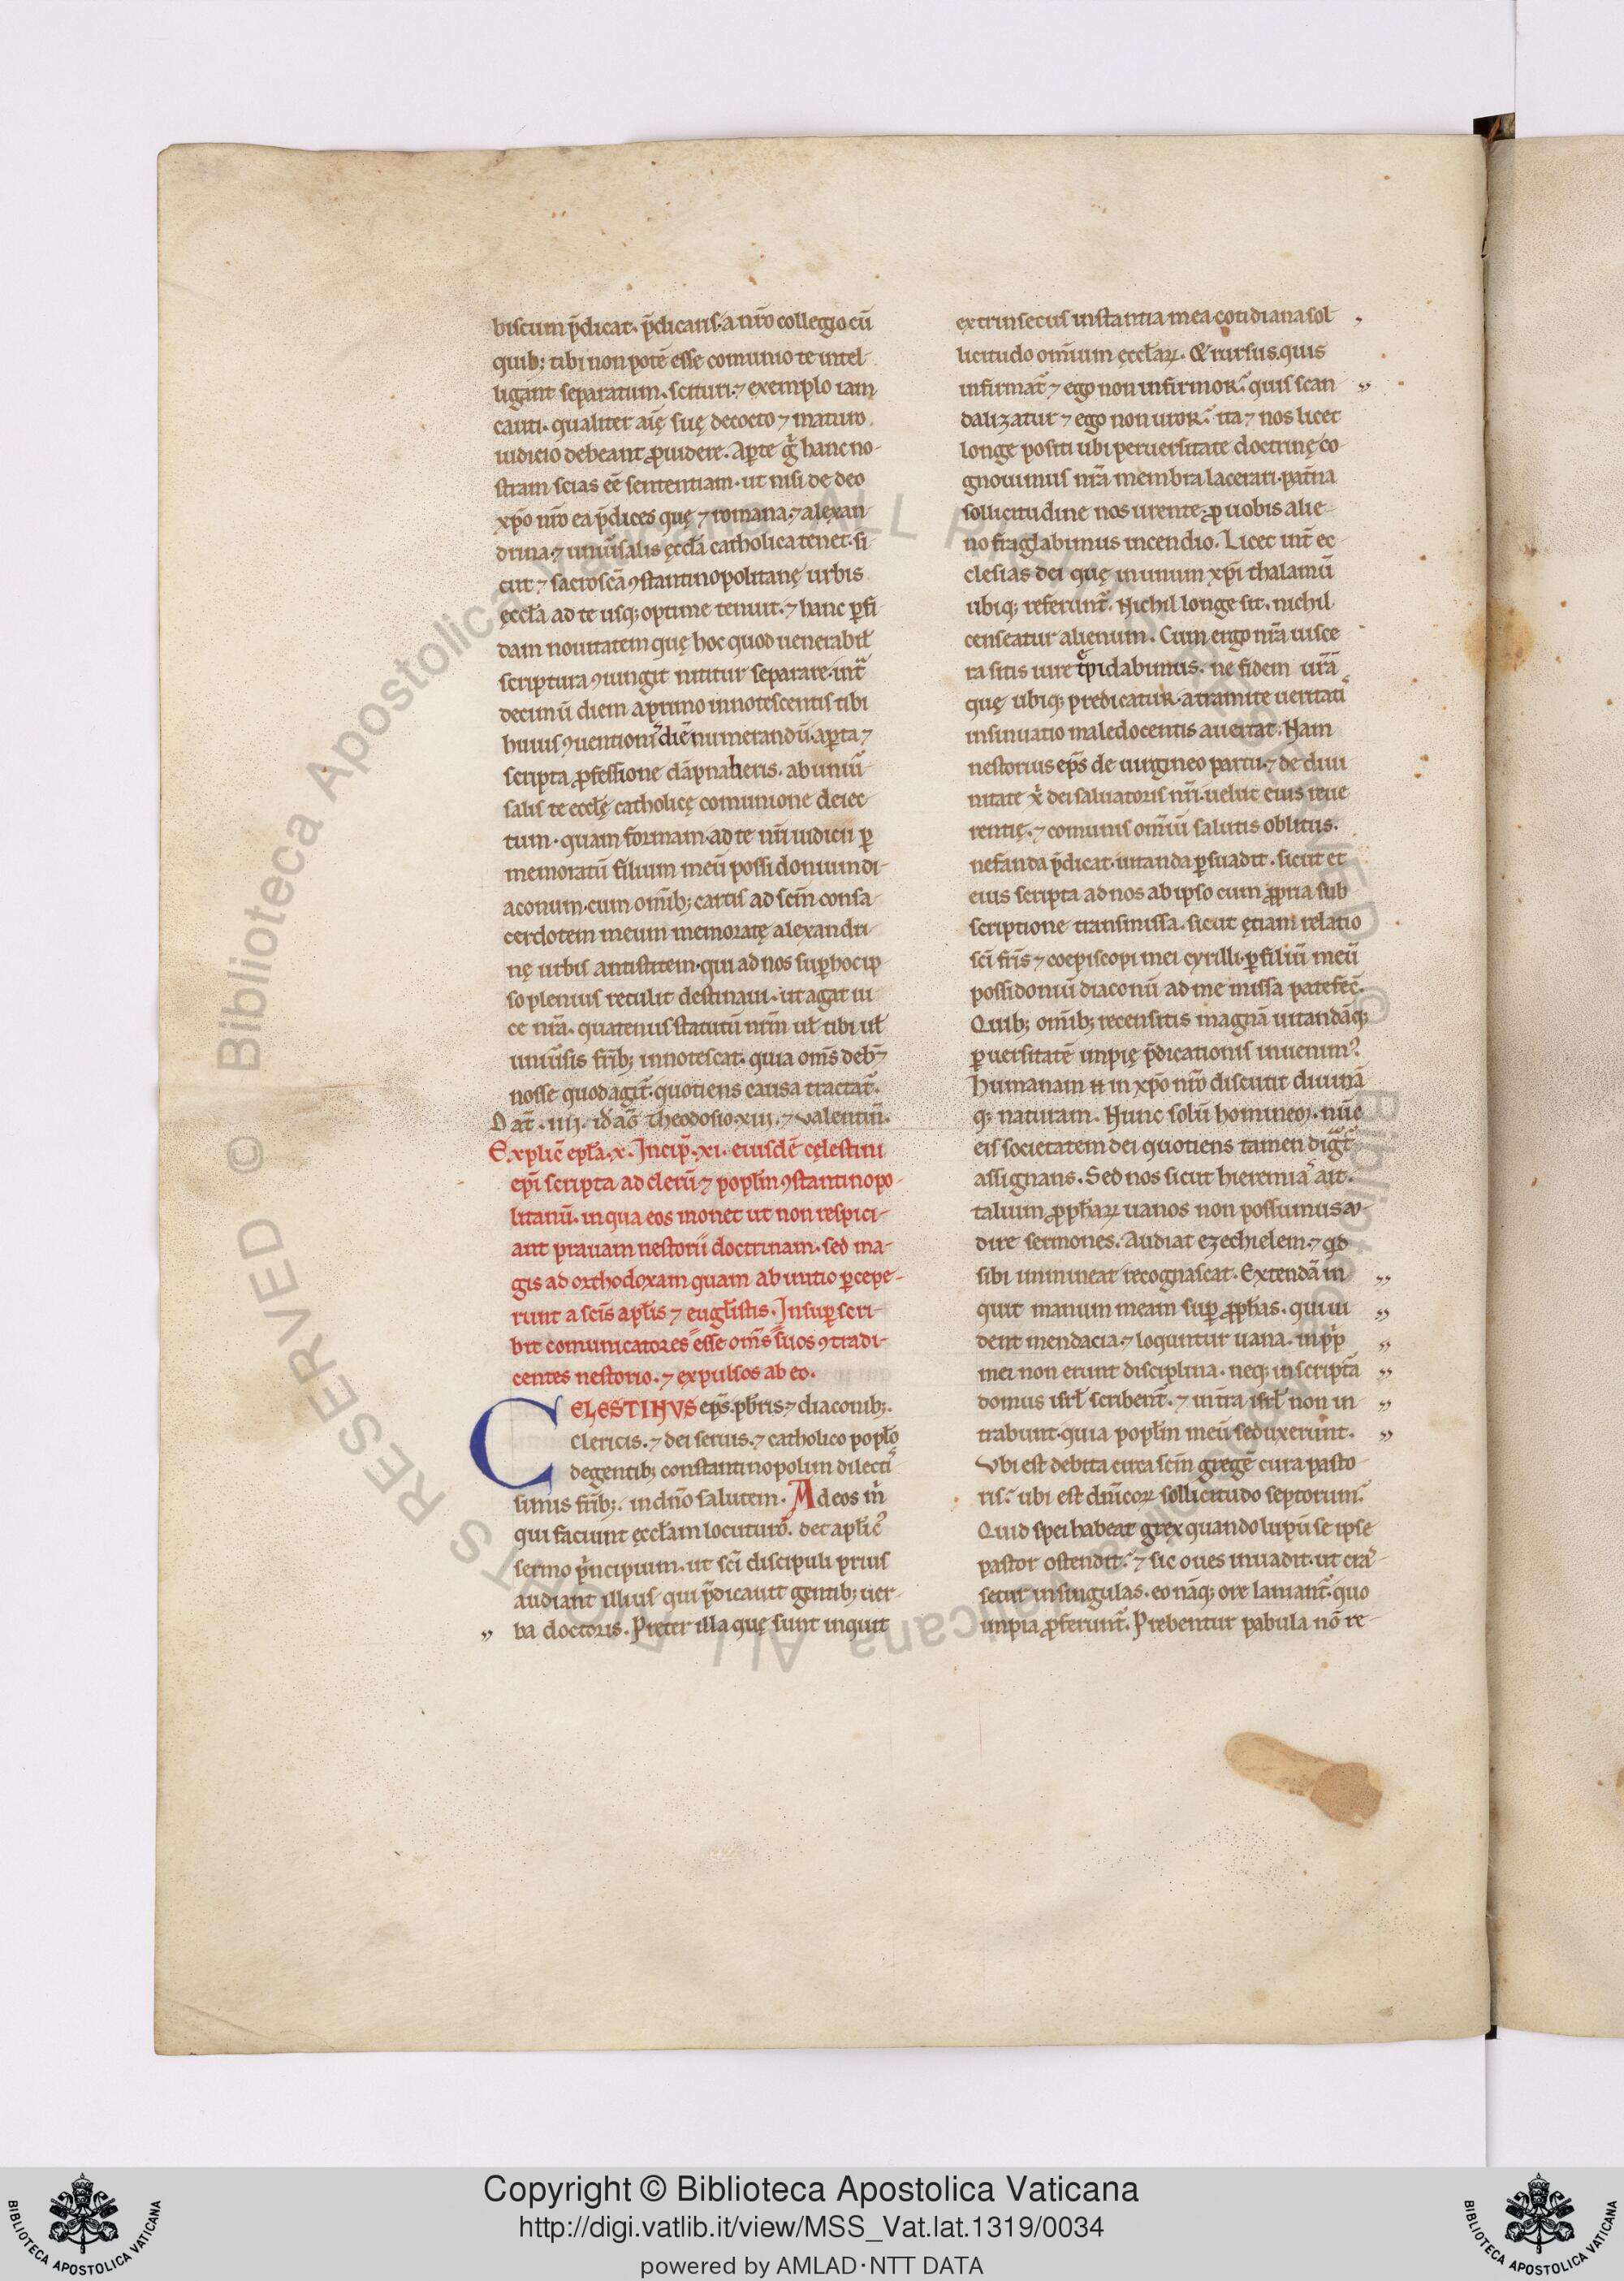 biscum p̄dicat. p̄dicans. a nr̄o collegio cū
quib; tibi non potē esse comunio te intel-
ligant separatum. scituri. ⁊ exemplo iam
cauti. qualiter aīę suę decocto ⁊ maturo
iudicio debeant ꝓuidere. Aꝑte g̃ hanc no-
stram scias eē sententiam. ut nisi de deo
xp̄o nr̄o ea p̄dices quę ⁊ romana. ⁊ alexan
drina. ⁊ uniu͛salis ęccl̄a catholica tenet. si-
cut ⁊ sacroscā ꝯstantinopolitanę urbis
ęccl̄a ad te usq; optime tenuit. ⁊ hanc ꝑfi-
dam nouitatem quę hoc quod uenerabil̄
scriptura ꝯiungit nititur separare. int̄
decimū diem a primo innotescentis tibi
huius ꝯuentionis diē numerandū. aꝑta ⁊
scripta ꝓfessione dāpnaueris. ab uniu͛
salis te eccl̄ę catholicę comunione deiec-
tum. quam formam. ad te nr̄i iudicii ꝑ
memoratū filium meū possidonium di-
aconum. cum om̄ib; cartis ad scm̄ consa-
cerdotem meum memoratę alexandri-
nę urbis antistitem. qui ad nos suꝑ hoc ip
so plenius retulit destinaui. ut agat ui
ce nr̄a. quatenus statutū nr̄m ul̄ tibi ul̄
uniu͛sis fr̄ib; innotescat. quia om̄s deb̄t
nosse quod agit̄. quotiens causa tractat̄.
Dat̄. iiij. id̄ aḡ Theodosio. xiij. ⁊ valentin̄.
Explic̄ epl̄a. x. Incip̄. xi. eiusdē cęlestini
ep̄i scripta ad clerū ⁊ popl̄m ꝯstantinopo-
litanū. in qua eos monet ut non respici-
ant prauam nestorii doctrinam. sed ma-
gis ad orthodoxam quam ab initio ꝑcepe-
runt a scīs apl̄is ⁊ eugl̄istis. Insuꝑ scri-
bit comunicatores esse om̄s suos ꝯtradi-
centes nestorio. ⁊ expulsos ab eo.
CELESTINVS ep̄s. pb̄ris ⁊ diaconib;.
clericis. ⁊ dei seruis. ⁊ catholico popl̄o
degentib; constantinopolim dilecti
simis fr̄ib;. in dn̄o salutem. Ad eos m̄
qui faciunt ęccl̄am locuturo. det apl̄ic᷒
sermo p̄ncipium. ut scī discipuli prius
audiant illius qui p̄dicauit gentib; uer-
„ ba doctoris. Preter illa quę sunt inquit
extrinsecus instantia mea cotidiana sol- ,
licitudo om̄ium ęccl̄aꝝ. Et rursus. quis
infirmat̄ ⁊ ego non infirmor? quis scan „
dalizatur ⁊ ego non uror? ita ⁊ nos licet
longe positi ubi peruersitate doctrinę co-
gnouimus nr̄a membra lacerari. pat̄na
sollicitudine nos urente. ꝓ uobis alie-
no fraglabimus incendio. Licet int̄ ec-
clesias dei quę in unum xp̄i thalamū
ubiq; referunt̄. Nichil longe sit. nichil
censeatur alienum. Cum ergo nr̄a uisce-
ra sitis iure trepidabimus. ne fidem ur̄a
quę ubiq; predicatur. a tramite ueritati᷒
insinuatio male docentis auertat. Nam
nestorius ep̄s de uirgineo partu. ⁊ de diui
nitate x̄ dei saluatoris nr̄i. uelut eius reue
rentię. ⁊ comunis om̄iū salutis oblitus.
nefanda p̄dicat. uitanda ꝑsuadit. sicut et
eius scripta ad nos ab ipso cum ꝓpria sub
scriptione transmissa. sicut ętiam relatio
scī fr̄is ⁊ coepiscopi mei cyrilli. ꝑ filiū meū
possidoniū diaconū ad me missa patefec̄.
Quib; om̄ib; recensitis magnā uitandāq;
ꝑuersitatē impię p̄dicationis inuenim᷒.
Humanam n̄ in xp̄o nr̄o discutit diuinā
q; naturam. Nunc solū hominem. nūc
eis societatem dei quotiens tamen digt̄
assignans. Sed nos sicut hieremias ait.
talium ꝓph̄aꝝ uanos non possumus au-
dire sermones. Audiat ezechielem. ⁊ qd̄
sibi immineat recognascat. Extendā in „
quit manum meam suꝑ ꝓph̄as. qui ui „
dent mendacia. ⁊ loquntur uana. in pp̄ „
mei non erunt disciplina. neq; in scriptā „
domus isrl̄ scribent̄. ⁊ in t̄ra isrl̄ non in „
trabunt. quia popl̄m meū seduxerunt. „
Vbi est debita circa scm̄ gregē cura pasto-
ris? ubi est dn̄icoꝝ sollicitudo septorum?
Quid spei habeat grex quando lupū se ipse
pastor ostendit? ⁊ sic oues inuadit. ut cra᷒-
setur in singulas. eo nāq; ore laniant̄. quo
impia ꝓferunt̄. Prebentur pabula nō re-
Copyright © Biblioteca Apostolica Vaticana
http://digi.vatlib.it/view/MSS_Vat.lat.1319/0034
powered by AMLAD·NTT DATA
BIBLIOTECA APOSTOLICA VATICANA
BIBLIOTECA APOSTOLICA VATICANA